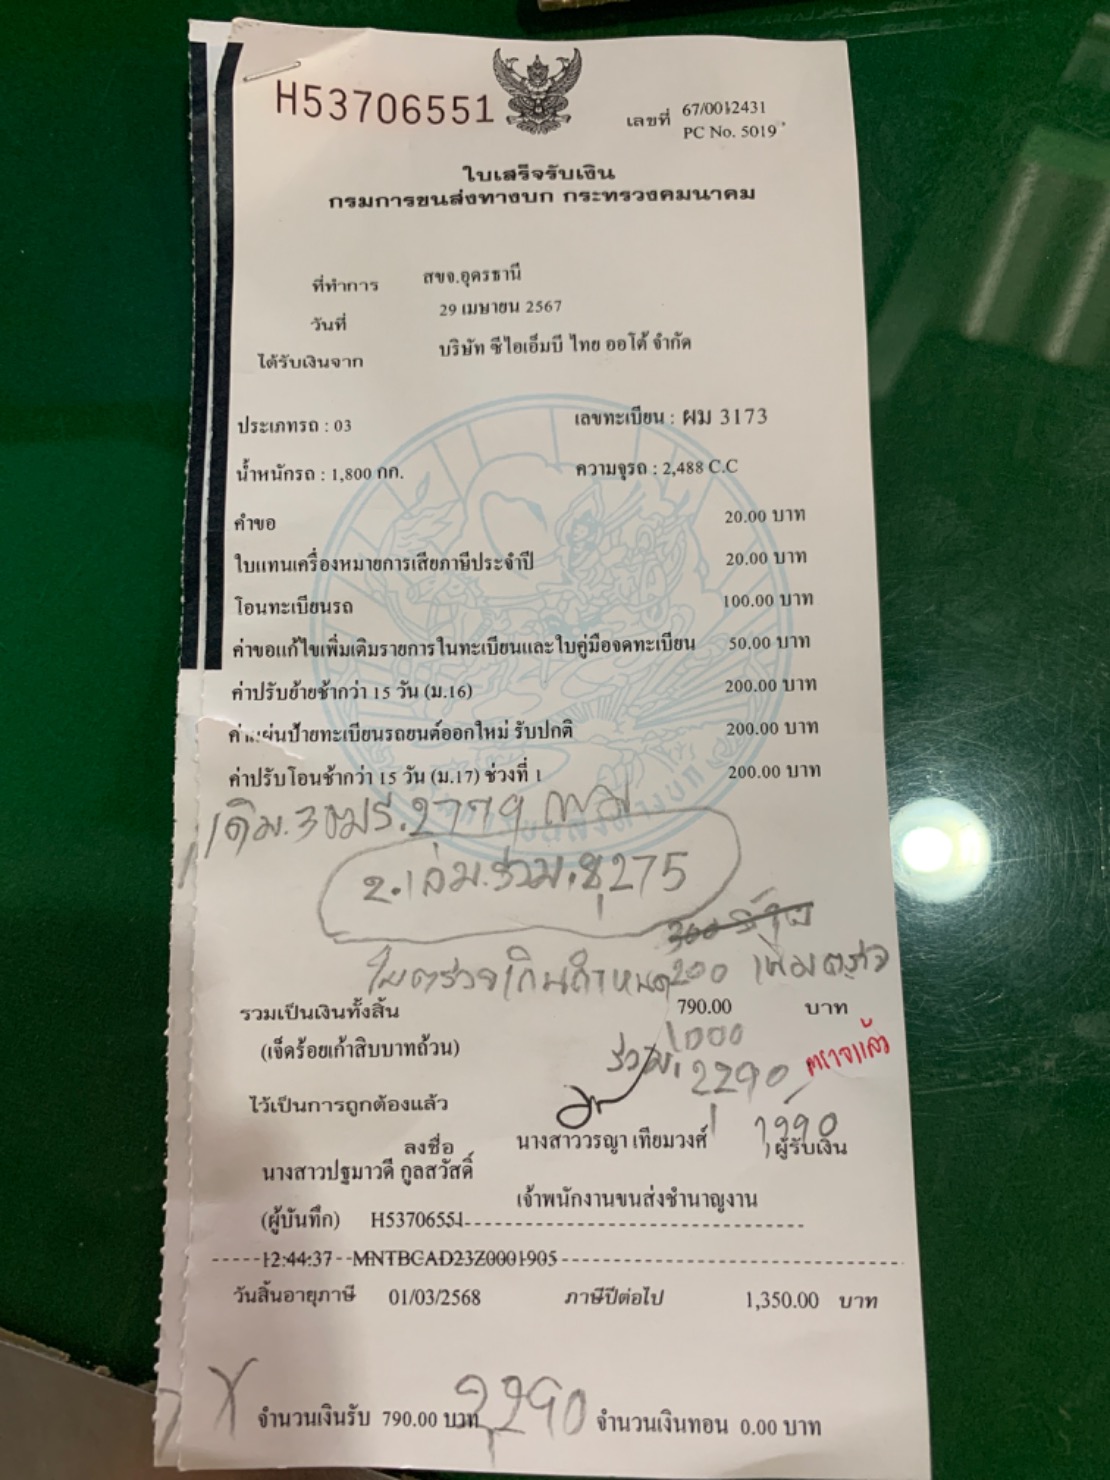 H53706551
เลขที่ 67/0012431
PC No. 5019
ใบเสร็จรับเงิน
กรมการขนส่งทางบก กระทรวงคมนาคม
ที่ทำการ สขจ.อุดรธานี
วันที่ 29 เมษายน 2567
ได้รับเงินจาก บริษัท ซีไอเอ็มบี ไทย ออโต้ จำกัด
ประเภทรถ : 03 เลขทะเบียน : ผม 3173
น้ำหนักรถ : 1,800 กก. ความจุรถ : 2,488 C.C
คำขอ 20.00 บาท
ใบแทนเครื่องหมายการเสียภาษีประจำปี 20.00 บาท
โอนทะเบียนรถ 100.00 บาท
ค่าขอแก้ไขเพิ่มเติมรายการในทะเบียนและใบคู่มือจดทะเบียน 50.00 บาท
ค่าปรับย้ายช้ากว่า 15 วัน (ม.16) 200.00 บาท
ค่าแผ่นป้ายทะเบียนรถยนต์ออกใหม่ รับปกติ 200.00 บาท
ค่าปรับโอนช้ากว่า 15 วัน (ม.17) ช่วงที่ 1 200.00 บาท
เดิม. 3ขมร.2779 กทม
2.เล่ม.รวม. 8275
ใบตรวจเกินกำหนด 200 เพิ่มตรวจ
รวมเป็นเงินทั้งสิ้น 790.00 บาท
(เจ็ดร้อยเก้าสิบบาทถ้วน)
1000
รวม. 2290 ตรวจแล้ว
ไว้เป็นการถูกต้องแล้ว
1990
ลงชื่อ นางสาววรญา เทียมวงศ์ ผู้รับเงิน
นางสาวปฐมาวดี กูลสวัสดิ์
เจ้าพนักงานขนส่งชำนาญงาน
(ผู้บันทึก) H53706551
12:44:37--MNTBCAD23Z0001905
วันสิ้นอายุภาษี 01/03/2568 ภาษีปีต่อไป 1,350.00 บาท
2290
จำนวนเงินรับ 790.00 บาท จำนวนเงินทอน 0.00 บาท